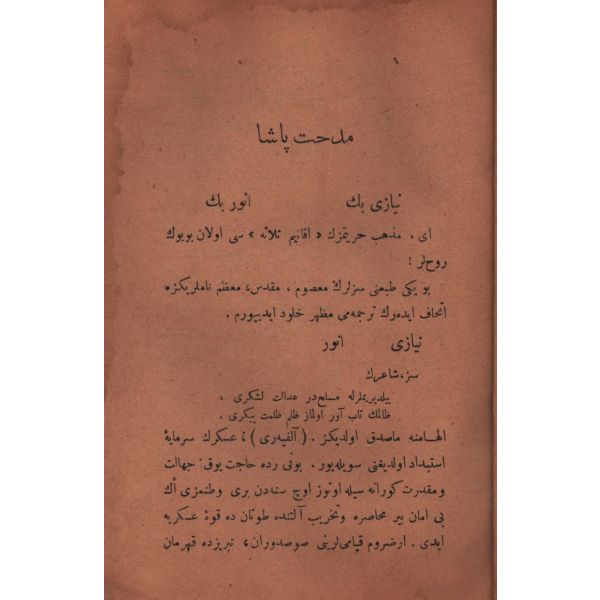 مدحت پاشا
نیازی بك انور بك
ای . مذهب حریتمزك « اقانیم ثلاثه » سی اولان بویوك
روحلر !
بو یکی طبعنی سزلرك معصوم ، مقدس، معظم ناملریکزه
اتحاف ایده‌رك ترجمه‌می مظهر خلود ایدییورم .
نیازی انور
سز، شاعرك
ییلدیریملرله مسلح‌در عدالت لشکری ،
ظالمك تاب آور اولماز ظلم ظلمت پیکری .
الهامنه ماصدق اولدیکز . ( آلفیه‌ری ) ، عسکرك سرمایهٔ
استبداد اولدیغنی سویله‌یور . بونی رده حاجت یوق: جهالت
ومقدرت کورانه سیله اوتوز اوچ سنه‌دن بری وطنمزی اك
بی امان بیر محاصره وتخریب آلتنده طوتان ده قوهٔ عسکریه
ایدی . ارضروم قیامی‌لرینی صوصدوران ، تبریزده قهرمان